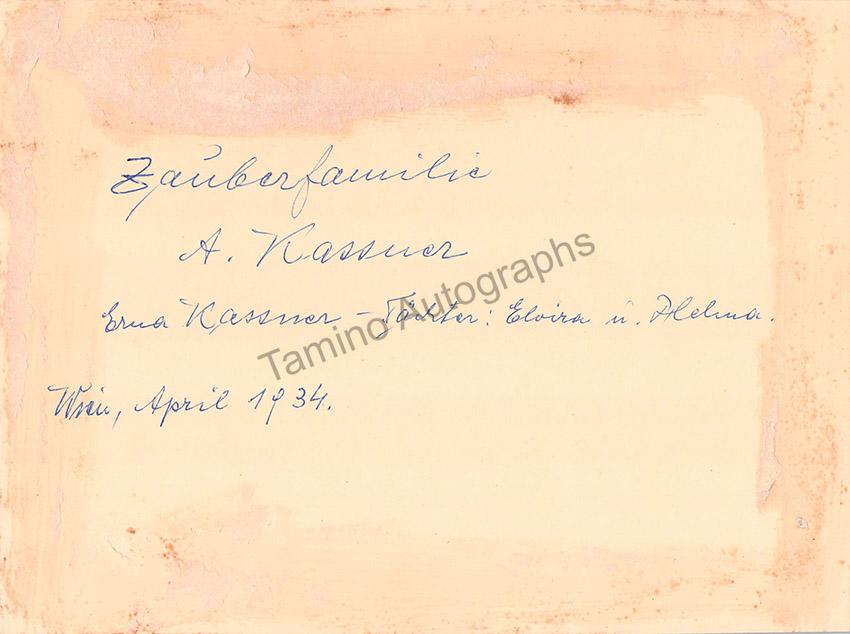 Zauberfamilie
A. Kassner
Erna Kassner - Töchter: Elvira u. Helma.
Wien, April 1934.
Tamino Autographs